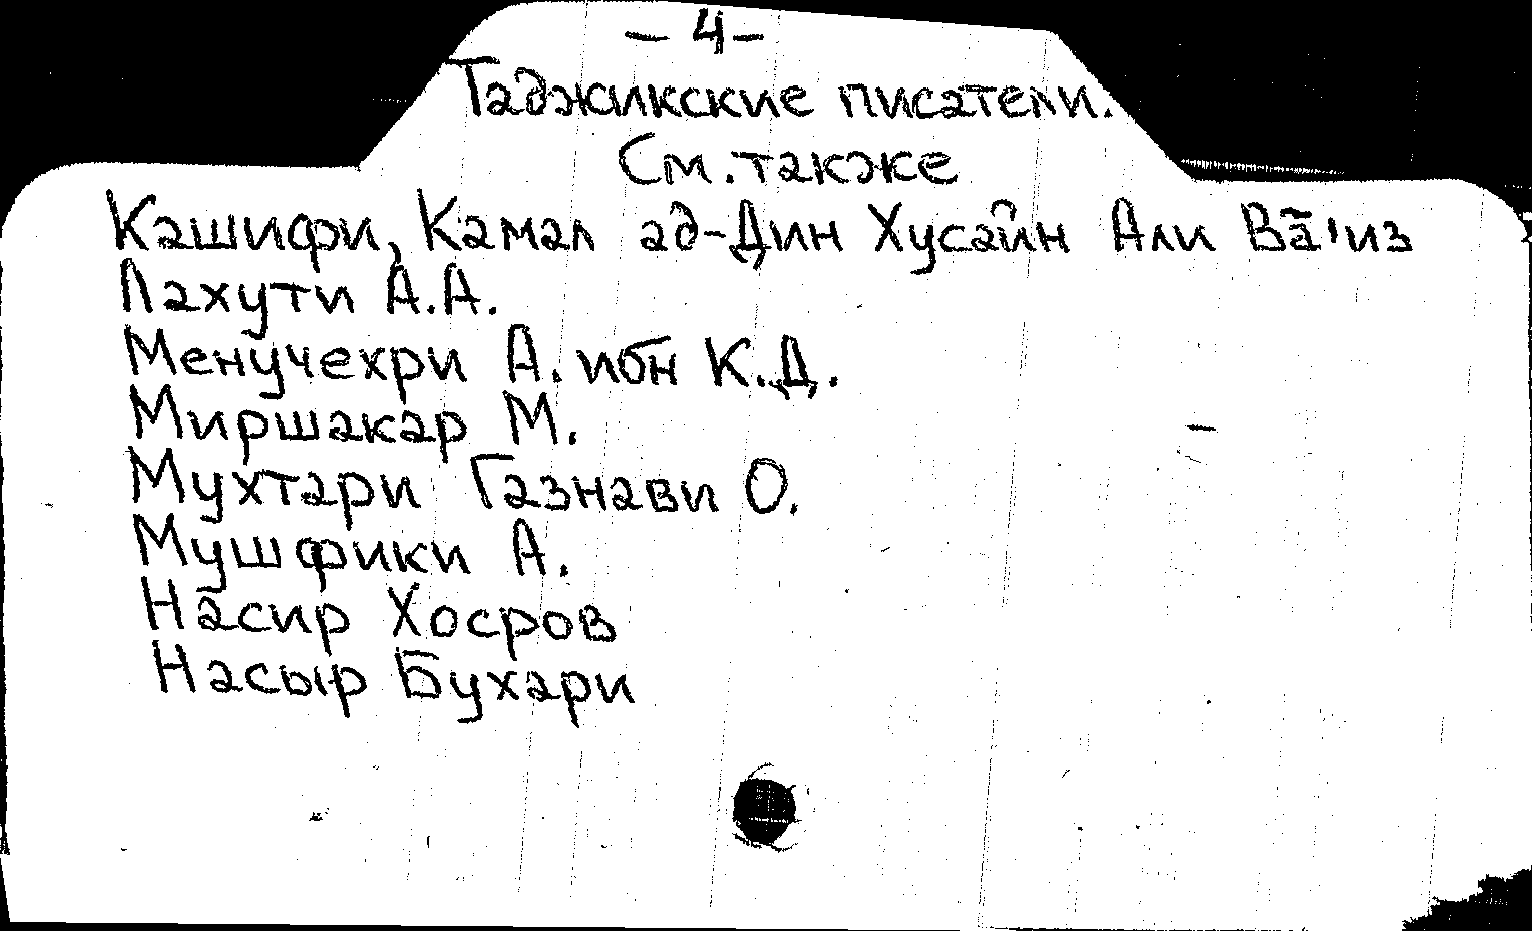 – 4 –
Таджикские писатели.
См. также
Кашифи, Камал ад-Дин Хусайн Али Ва̄'из
Лахути А.А.
Менучехри А. ибн К.Д.
Миршакар М.
Мухтари Газнави О.
Мушфики А.
Насир Хосров
Насыр Бухари